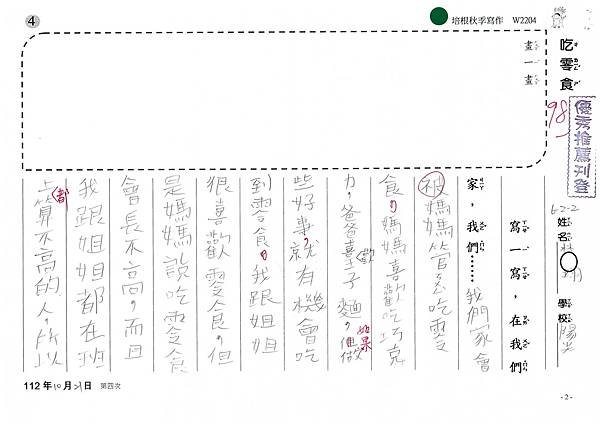 ④
培根秋季寫作 W2204
吃零食
畫一畫
98
優秀推薦刊登
姓名
學校 陽光
寫一寫，在我們
家，我們……我們家會
被媽媽管至吃零
食，媽媽喜歡吃巧克
力，爸爸喜歡 麵，如果但做
些好事，就有機會吃
到零食。我跟姐姐
很喜歡零食，但
是媽媽說吃零食
會長不高，而且
我跟姐姐都在班
上都算不高的人，所以
112年10月21日 第四次
-2-